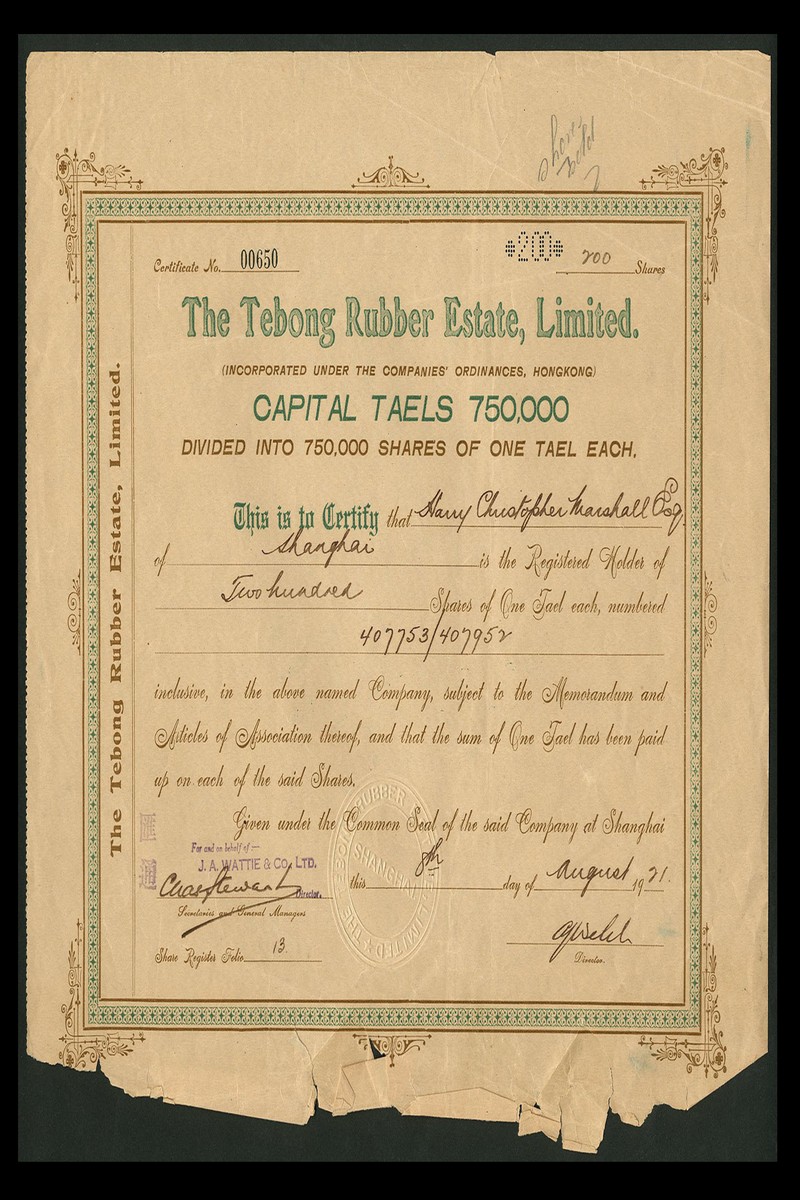 Shares
Certificate No. 00650 *200* 200 Shares
The Tebong Rubber Estate, Limited.
(INCORPORATED UNDER THE COMPANIES' ORDINANCES, HONGKONG)
CAPITAL TAELS 750,000
DIVIDED INTO 750,000 SHARES OF ONE TAEL EACH.
This is to Certify that Harry Christopher Marshall Esq.
of Shanghai is the Registered Holder of
Two hundred Shares of One Tael each, numbered
407753/407952
inclusive, in the above named Company, subject to the Memorandum and
Articles of Association thereof, and that the sum of One Tael has been paid
up on each of the said Shares.
Given under the Common Seal of the said Company at Shanghai
For and on behalf of:—
J. A. WATTIE & CO., LTD.
this 8th day of August 1921.
Chas Stewart Director.
Secretaries and General Managers
Director.
Share Register Folio 13.
The Tebong Rubber Estate, Limited.
SHANGHAI